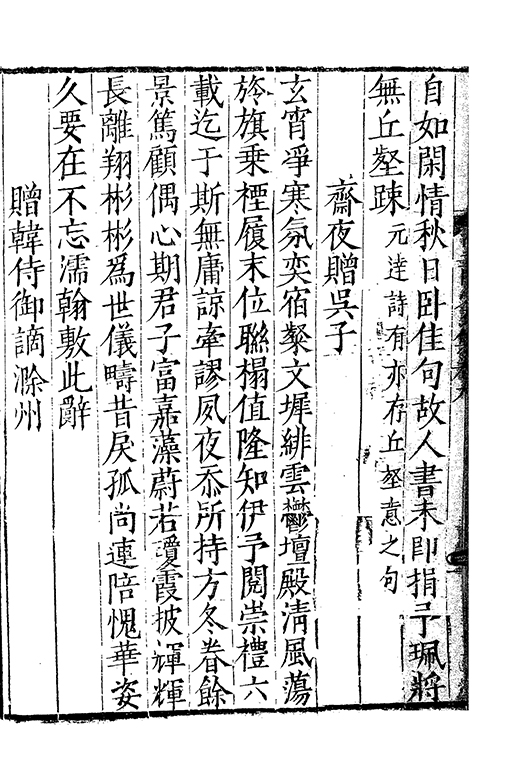 自如閑情秋日卧佳句故人書未即捐予珮將
無丘壑踈元達詩有亦存丘壑意之句
齋夜贈吳子
玄宵爭寒氛奕宿粲文墀緋雲鬱壇殿清風蕩
旍旗乗履末位聮榻值隆知伊予閱崇禮六
載迄于斯無庸諒牽謬夙夜忝所持方冬眷餘
景篤顧偶心期君子富嘉藻蔚若瓊霞披輝輝
長離翔彬彬爲世儀疇昔戾孤尚連陪愧華姿
久要在不忘濡翰敷此辭
贈韓侍御謫滁州